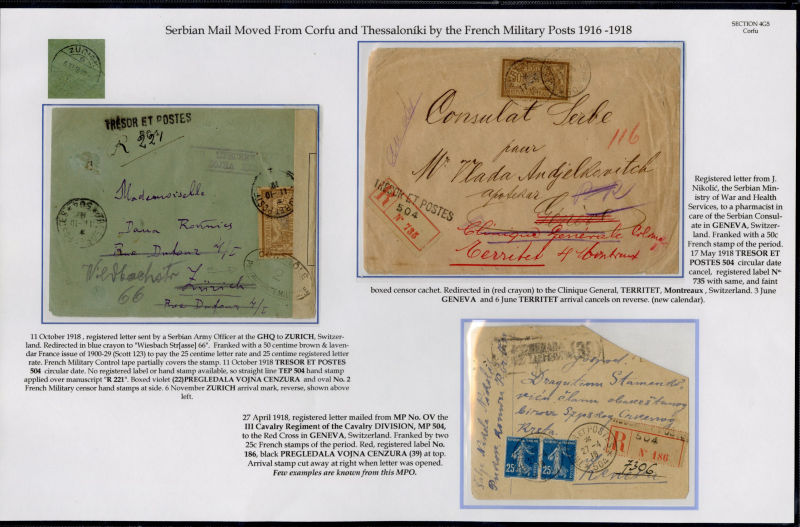 Serbian Mail Moved From Corfu and Thessaloníki by the French Military Posts 1916 -1918
SECTION 4G8
Corfu
ZURICH
TRÉSOR ET POSTES
504
R 221
Mademoiselle
Dana
Rue Dufour
Zürich
Rue Dufour
66
11 October 1918 , registered letter sent by a Serbian Army Officer at the GHQ to ZURICH, Switzer-
land. Redirected in blue crayon to "Wiesbach Str[asse] 66". Franked with a 50 centime brown & laven-
dar France issue of 1900-29 (Scott 123) to pay the 25 centime letter rate and 25 centime registered
rate. French Military Control tape partially covers the stamp. 11 October 1918 TRESOR ET POSTES
504 circular date. No registered label or hand stamp available, so straight line TEP 504 hand stamp
applied over manuscript "R 221". Boxed violet (22)PREGLEDALA VOJNA CENZURA and oval No. 2
French Military censor hand stamps at side. 6 November ZURICH arrival mark, reverse, shown above
left.
Consulat Serbe
pour
Mr Vlada Andjelkovitch
apotekar
116
TRÉSOR ET POSTES
504
N° 735
Genève
Clinique Générale
Territet Montreux
Registered letter from J.
Nikolić, the Serbian Min-
istry of War and Health
Services, to a pharmacist in
care of the Serbian Consul-
ate in GENEVA, Switzer-
land. Franked with a 50c
French stamp of the period.
17 May 1918 TRESOR ET
POSTES 504 circular date
cancel, registered label Nº
735 with same, and faint
boxed censor cachet. Redirected in (red crayon) to the Clinique General, TERRITET, Montreaux , Switzerland. 3 June
GENEVA and 6 June TERRITET arrival cancels on reverse. (new calendar).
27 April 1918, registered letter mailed from MP No. OV the
III Cavalry Regiment of the Cavalry DIVISION, MP 504,
to the Red Cross in GENEVA, Switzerland. Franked by two
25c French stamps of the period. Red, registered label No.
186, black PREGLEDALA VOJNA CENZURA (39) at top.
Arrival stamp cut away at right when letter was opened.
Few examples are known from this MPO.
(39)
R
504
N° 186
7306
25
25